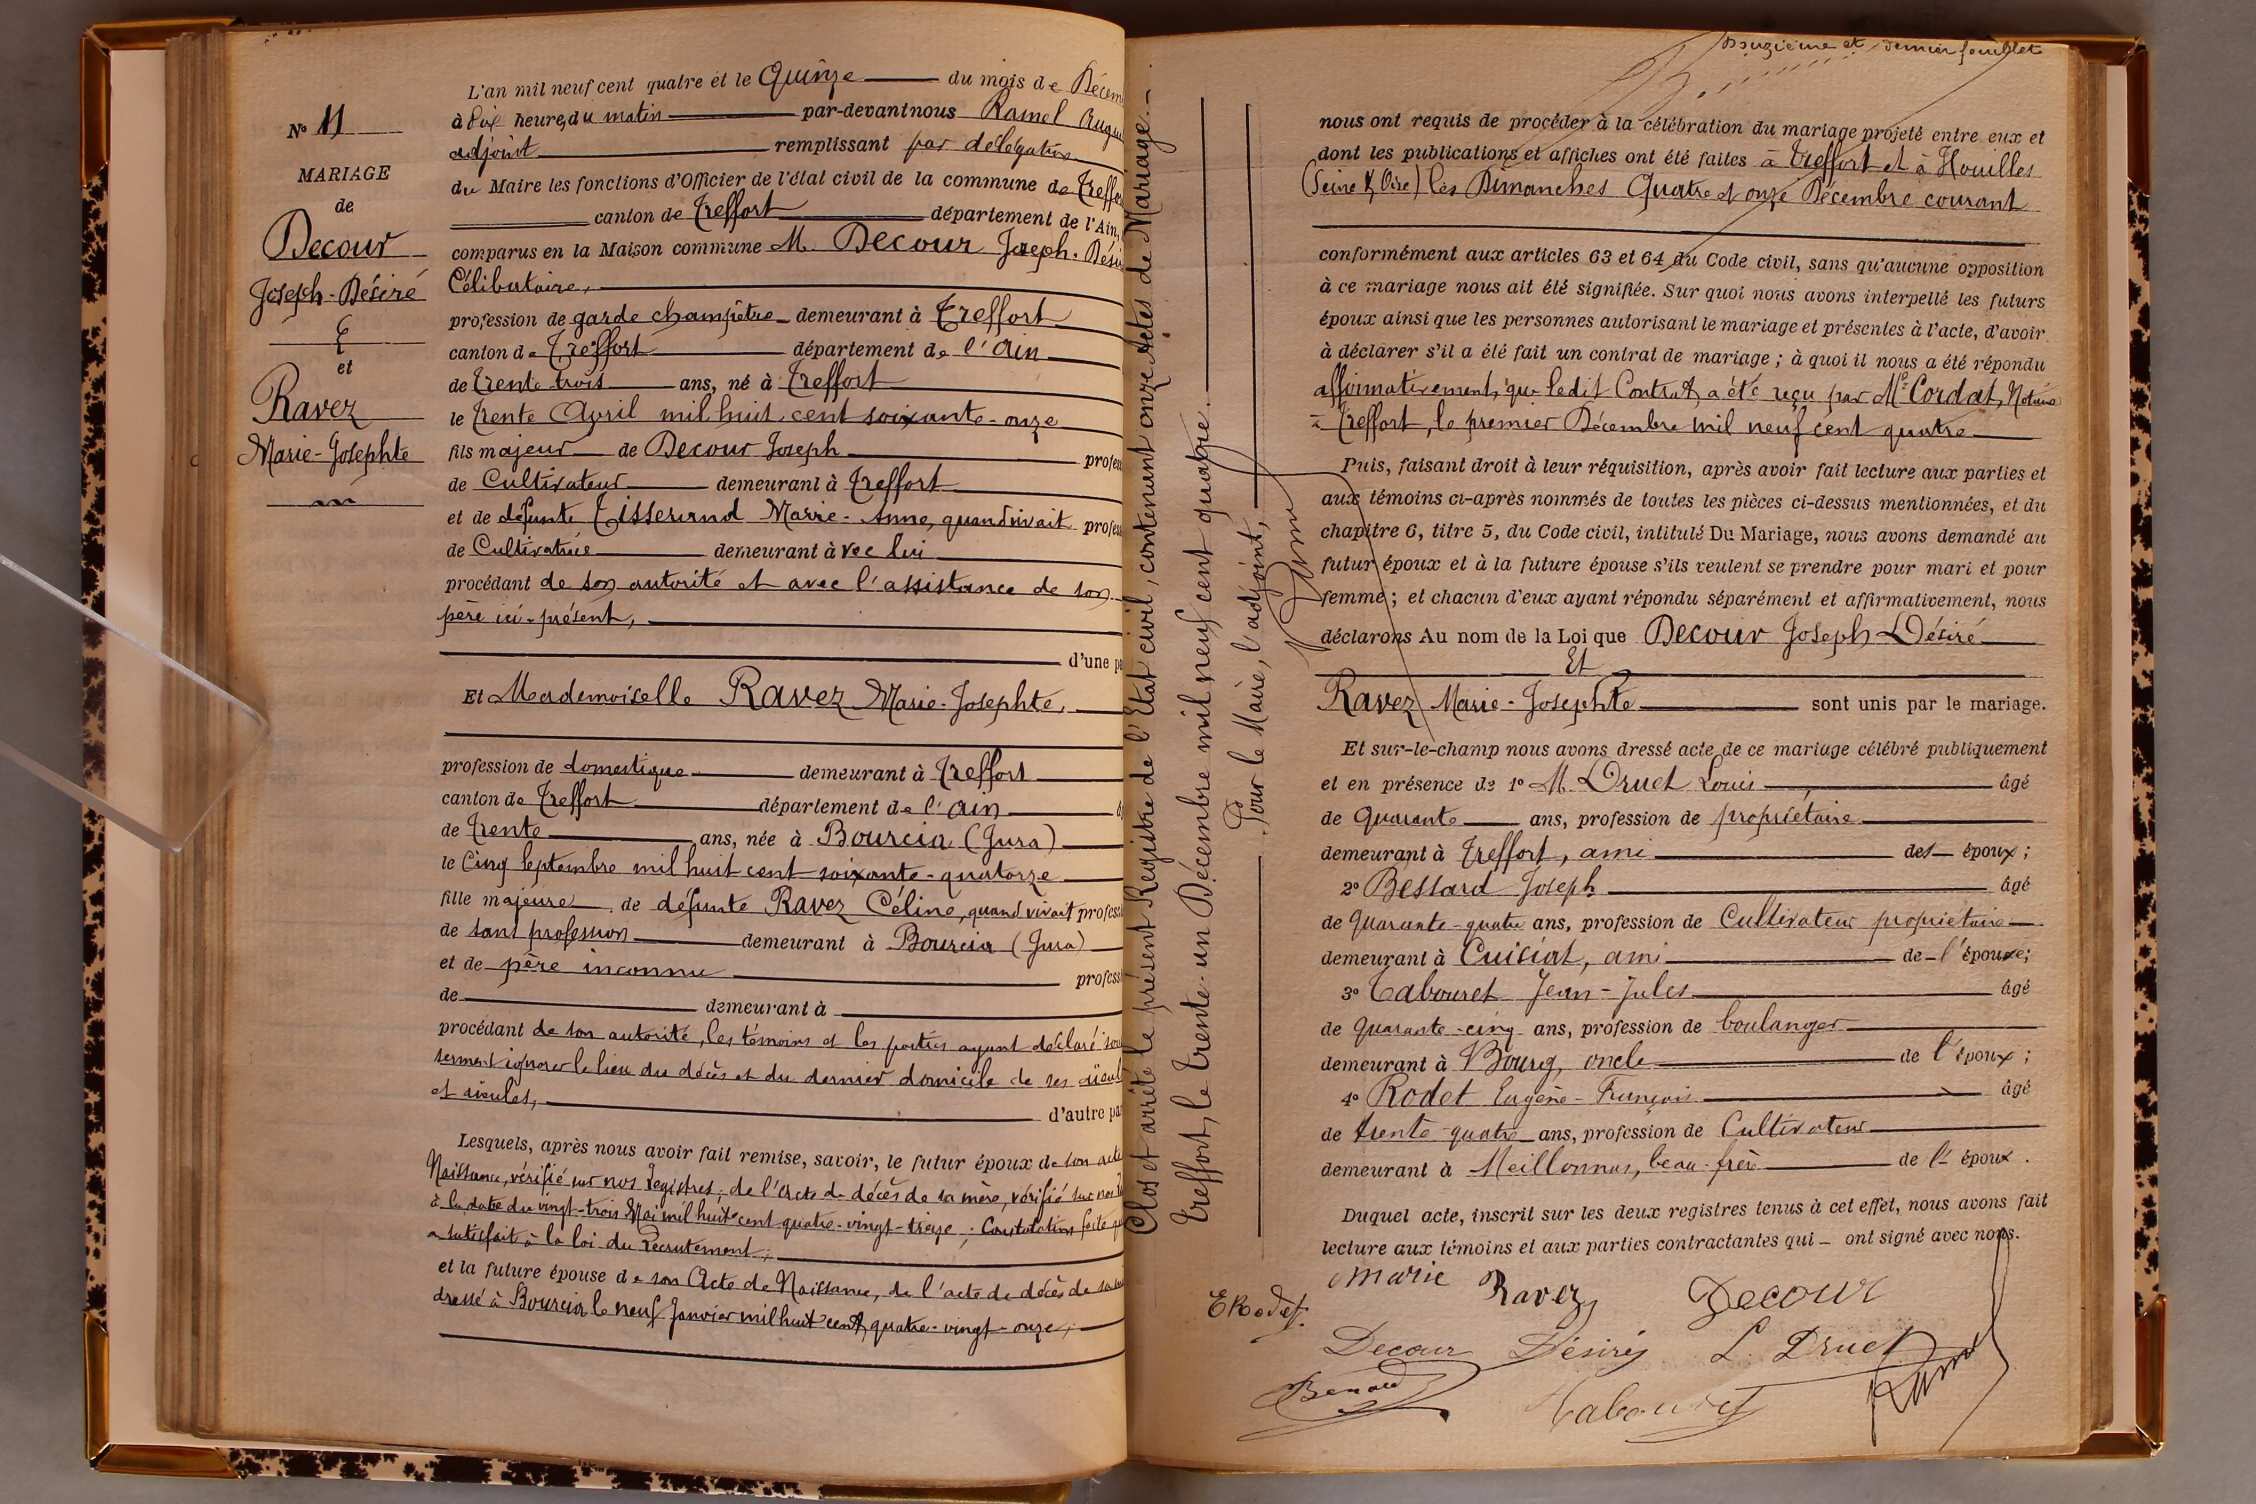 N° 11
MARIAGE
de
Decour
Joseph-Désiré
&
et
Ravez
Marie-Josephte
L'an mil neuf cent quatre et le Quinze du mois de Décem
à dix heures du matin par-devant nous Ramel Augu
adjoint remplissant par délégation
du Maire les fonctions d'Officier de l'état civil de la commune de Treffo
canton de Treffort département de l'Ain,
comparus en la Maison commune M. Decour Joseph-Dési
Célibataire,
profession de garde champêtre demeurant à Treffort
canton de Treffort département de l'Ain
de trente trois ans, né à Treffort
le trente Avril mil huit cent soixante-onze
fils majeur de Decour Joseph profes
de Cultivateur demeurant à Treffort
et de défunte Tisserand Marie-Anne, quand vivait profes
de Cultivatrice demeurant avec lui
procédant de son autorité et avec l'assistance de son
père ici-présent,
d'une pa
Et Mademoiselle Ravez Marie-Josephte,
profession de domestique demeurant à Treffort
canton de Treffort département de l'Ain
de trente ans, née à Bourcia (Jura)
le Cinq Septembre mil huit cent soixante-quatorze
fille majeure de défunte Ravez Céline, quand vivait professi
de sans profession demeurant à Bourcia (Jura)
et de père inconnu professi
de demeurant à
procédant de son autorité, les témoins et les parties ayant déclaré sous
serment ignorer le lieu du décès et du dernier domicile de ses aïeuls
et aïeules, d'autre par
Lesquels, après nous avoir fait remise, savoir, le futur époux de son acte
Naissance, vérifié sur nos Registres, de l'acte de décès de sa mère, vérifié sur nos
à la date du vingt-trois Mai mil huit cent quatre-vingt-treize; Constatation faite qu
a satisfait à la loi du Recrutement;
et la future épouse de son Acte de Naissance, de l'acte de décès de sa
dressé à Bourcia le neuf Janvier mil huit cent quatre-vingt-onze;
Clos et arrêté le présent Registre de l'Etat civil, contenant onze Actes de Mariage.
Treffort, le trente-un Décembre mil neuf cent quatre.
Pour le Maire, l'adjoint,
Ramel
Douzième et dernier feuillet
nous ont requis de procéder à la célébration du mariage projeté entre eux et
dont les publications et affiches ont été faites à Treffort et à Houilles
(Seine & Oise) les Dimanches Quatre et onze Décembre courant
conformément aux articles 63 et 64 du Code civil, sans qu'aucune opposition
à ce mariage nous ait été signifiée. Sur quoi nous avons interpellé les futurs
époux ainsi que les personnes autorisant le mariage et présentes à l'acte, d'avoir
à déclarer s'il a été fait un contrat de mariage; à quoi il nous a été répondu
affirmativement, que ledit Contrat a été reçu par Me Cordat, Notaire
à Treffort, le premier Décembre mil neuf cent quatre
Puis, faisant droit à leur réquisition, après avoir fait lecture aux parties et
aux témoins ci-après nommés de toutes les pièces ci-dessus mentionnées, et du
chapitre 6, titre 5, du Code civil, intitulé Du Mariage, nous avons demandé au
futur époux et à la future épouse s'ils veulent se prendre pour mari et pour
femme; et chacun d'eux ayant répondu séparément et affirmativement, nous
déclarons Au nom de la Loi que Decour Joseph-Désiré
Et
Ravez Marie-Josephte sont unis par le mariage.
Et sur-le-champ nous avons dressé acte de ce mariage célébré publiquement
et en présence de 1° M. Druet Louis âgé
de quarante ans, profession de propriétaire
demeurant à Treffort, ami des époux;
2° Bessard Joseph âgé
de quarante-quatre ans, profession de Cultivateur propriétaire
demeurant à Cuisiat, ami de l'épouse;
3° Tabouret Jean-Jules âgé
de quarante-cinq ans, profession de boulanger
demeurant à Bourg, oncle de l'époux;
4° Rodet Eugène-François âgé
de trente-quatre ans, profession de Cultivateur
demeurant à Meillonnas, beau-frère de l'époux.
Duquel acte, inscrit sur les deux registres tenus à cet effet, nous avons fait
lecture aux témoins et aux parties contractantes qui ont signé avec nous.
marie Ravez Decour
E Rodet
Decour Désiré L. Druet
Tabouret Ramel